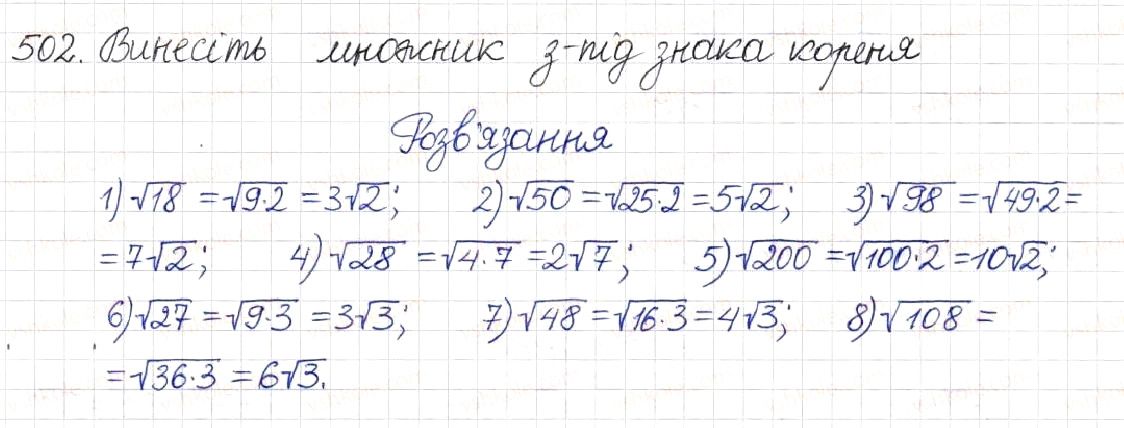 502. Винесіть множник з-під знака кореня
Розв'язання
1) √18 = √9·2 = 3√2; 2) √50 = √25·2 = 5√2; 3) √98 = √49·2 =
= 7√2; 4) √28 = √4·7 = 2√7; 5) √200 = √100·2 = 10√2;
6) √27 = √9·3 = 3√3; 7) √48 = √16·3 = 4√3; 8) √108 =
= √36·3 = 6√3.